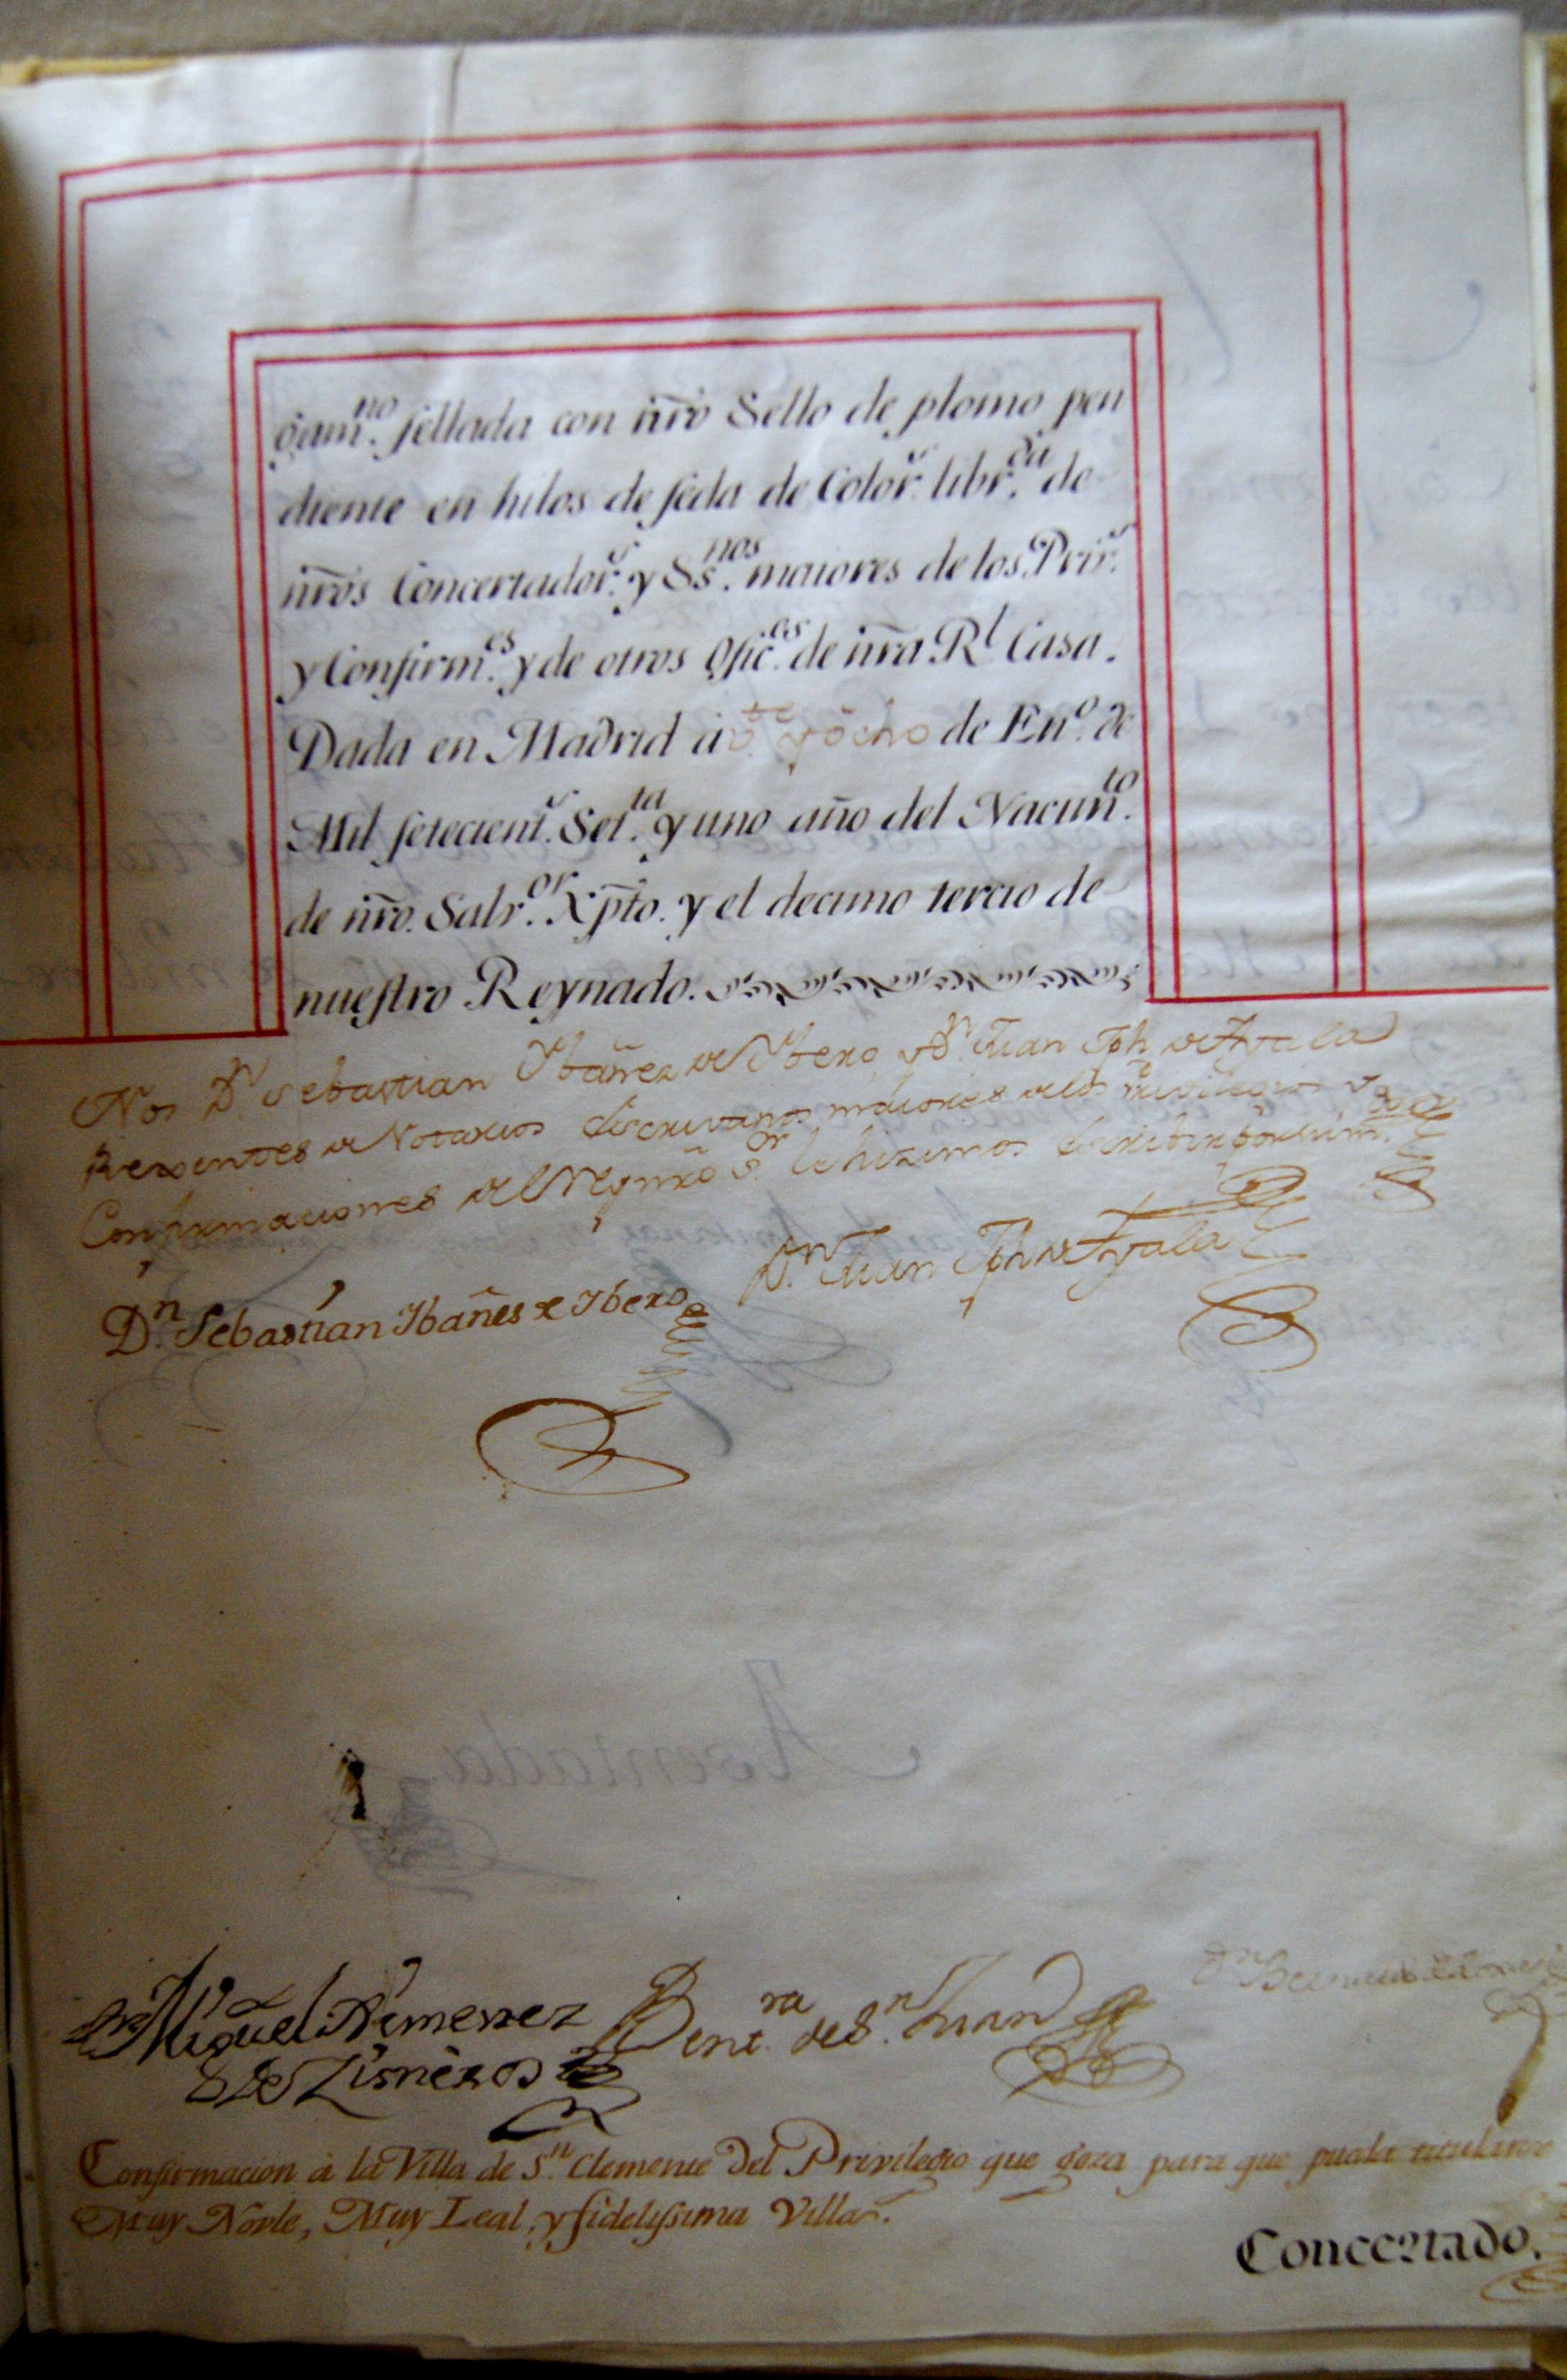 gam.no sellada con nr̃o Sello de plomo pen
diente en hilos de seda de Color.s libr.da de
nr̃os Concertador.s y Ss.nos maiores de los Priv.s
y Confirm.es y de otros Ofic.es de nr̃a Rl Casa.
Dada en Madrid a v.te y ocho de En.o de
Mil setecient.s Set.ta y uno año del Nacim.to
de nr̃o. Salv.or Xp̃to. y el decimo tercio de
nuestro Reynado.
Nos Dn. Sebastian Ybañez de Ybero, y Dn. Juan Jph de Ayala
Rexentes de Notarios Escrivanos maiores de los Privilegios y
Confirmaciones del Rey nr̃o S.or le hizimos Escribir por su m.do
Dn. Sebastian Ibañes de Ibero
Dn. Juan Jph de Ayala
Miguel Ximenez
de Zisneros
Bent.ra de Sn. Juan
Confirmacion à la Villa de Sn. Clemente del Privilegio que goza para que pueda titularse
Muy Noble, Muy Leal, y fidelissima Villa.
Concertado.